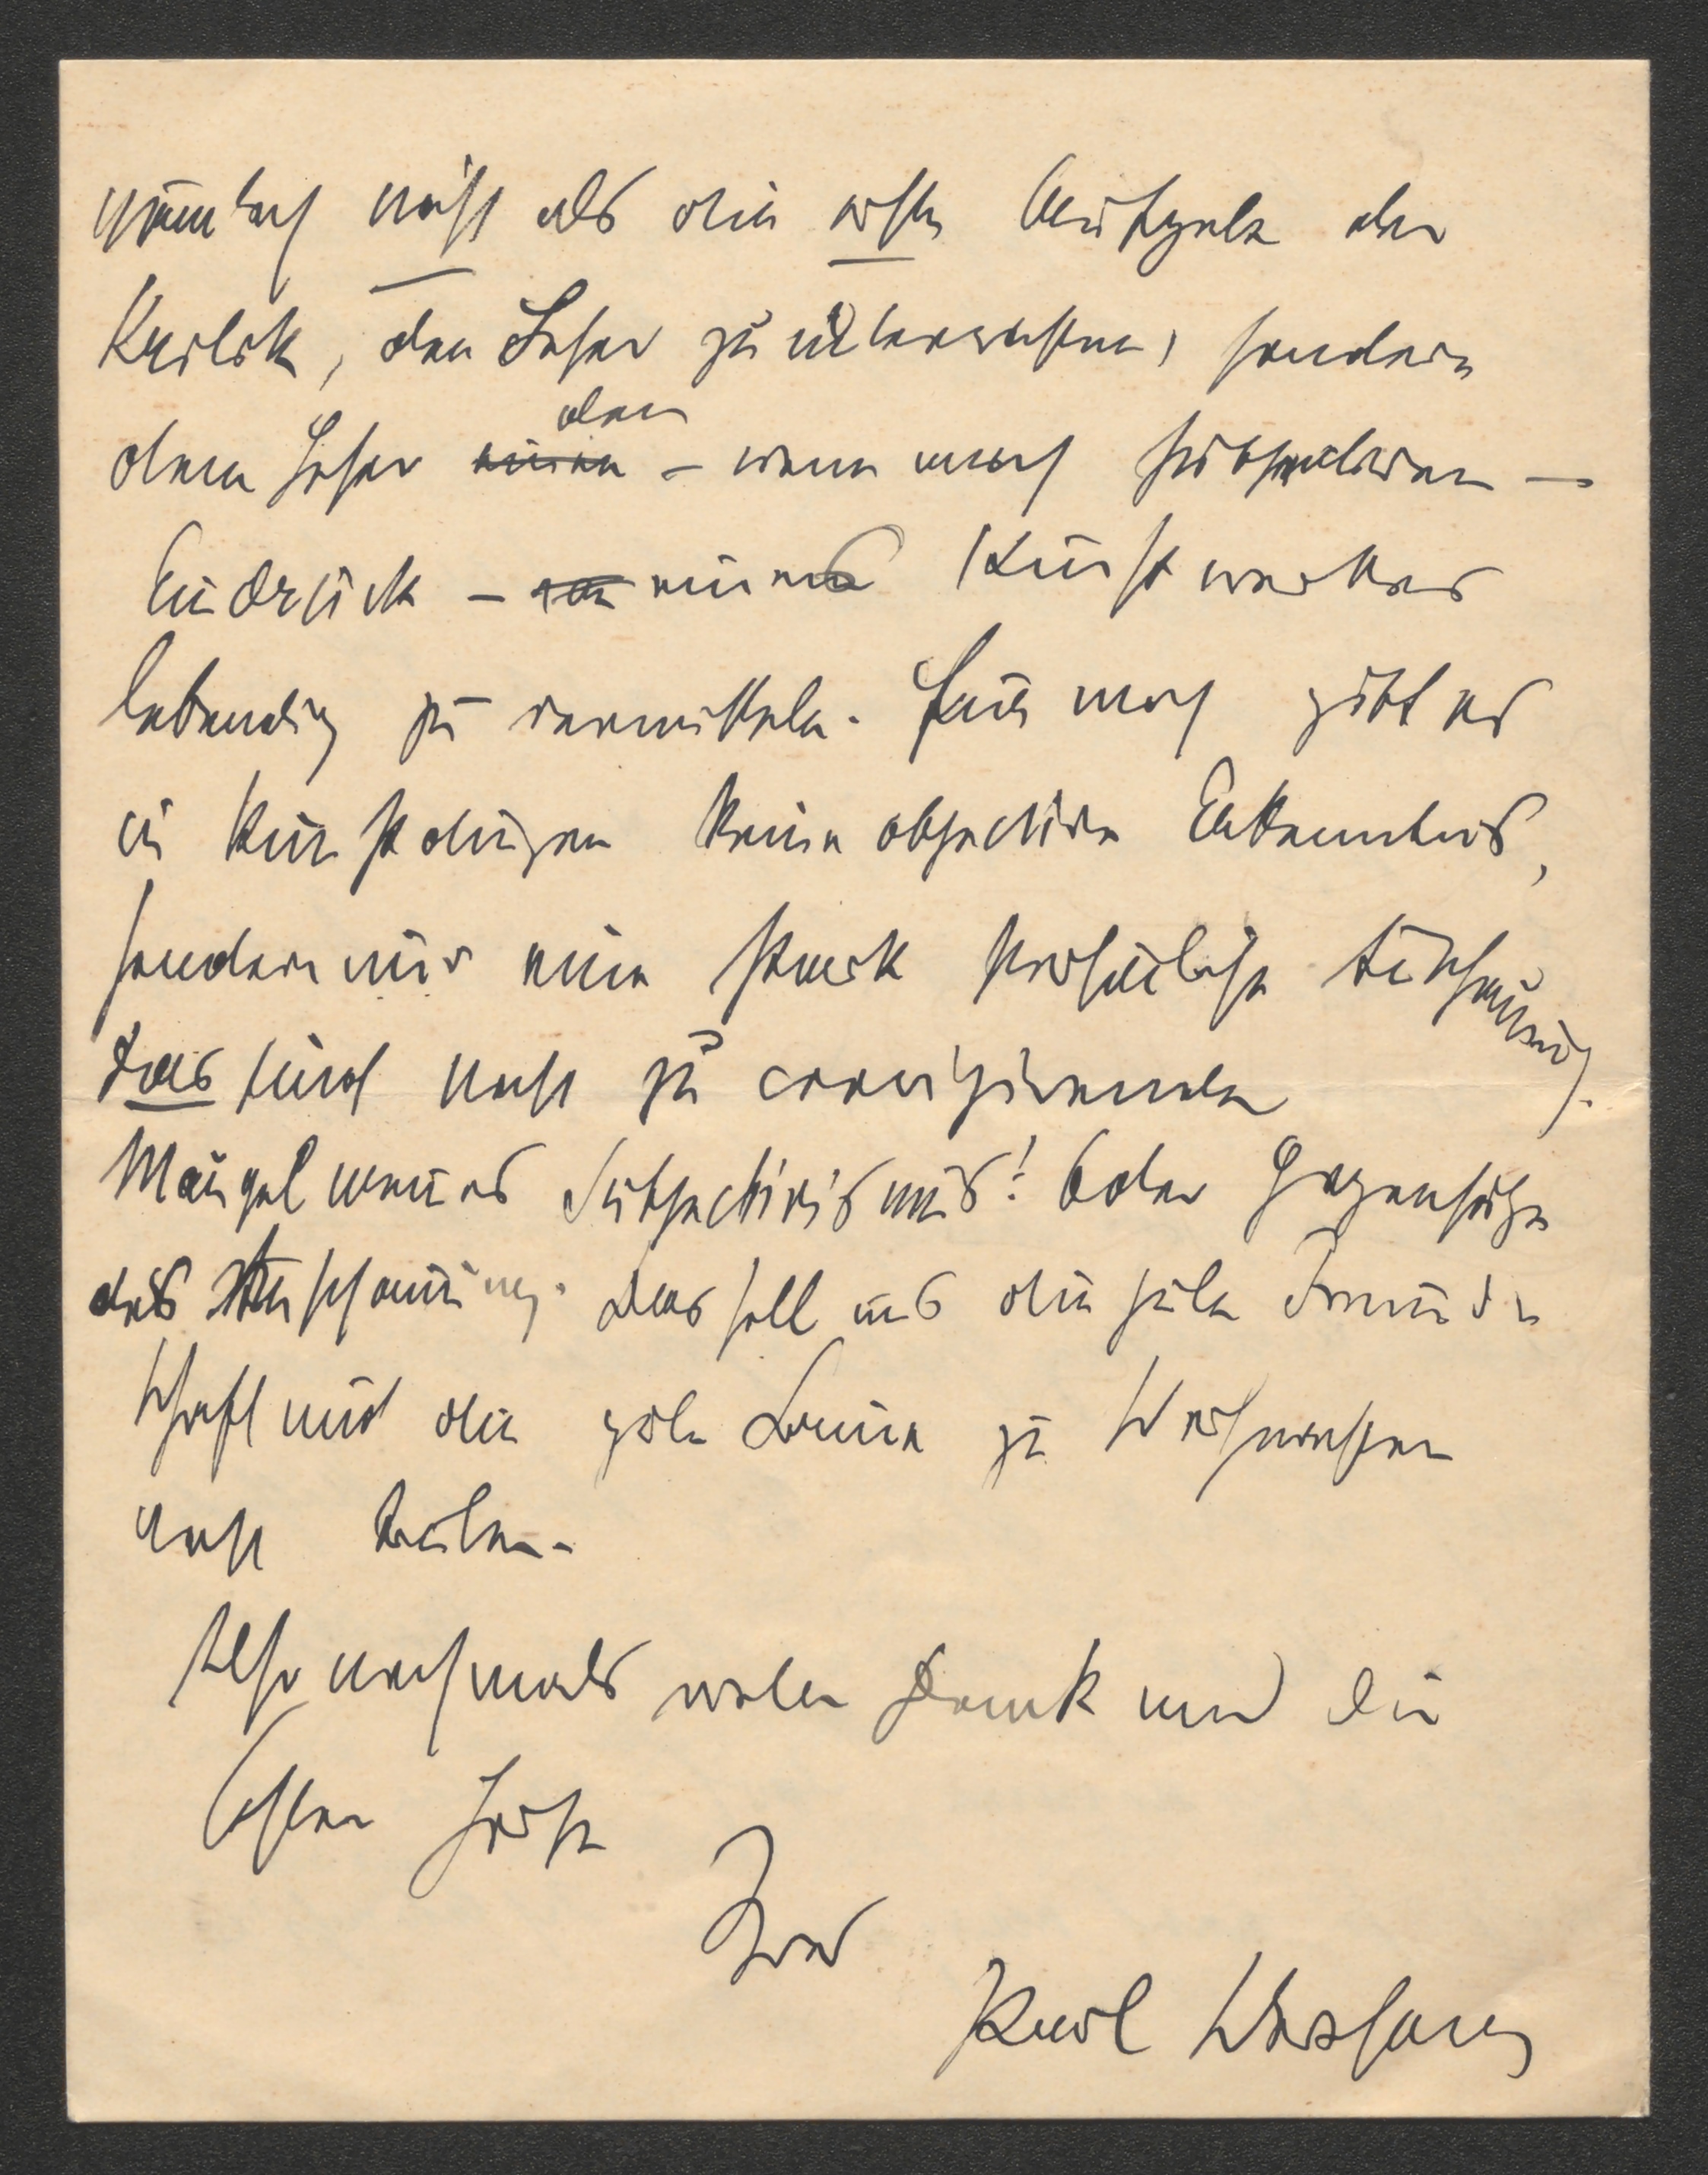 nämlich nicht als die erste Aufgabe der
Kritik, den Leser zu unterrichten, sondern
dem Leser einen den – wenn auch subjectiven –
Eindruck – eines Kunstwerkes
lebendig zu vermitteln. Für mich gibt es
in Kunstdingen keine objective Erkenntnis,
sondern nur eine stark persönliche Anschauung.
Das sind nicht zu corrigirende
Mängel meines Subjectivismus! Oder Gegensätze
der Anschauung. Das soll uns die gute Freund-
schaft und die gute Laune zu
nicht
Also nochmals vielen Dank und die
besten Grüße
Ihres
Karl